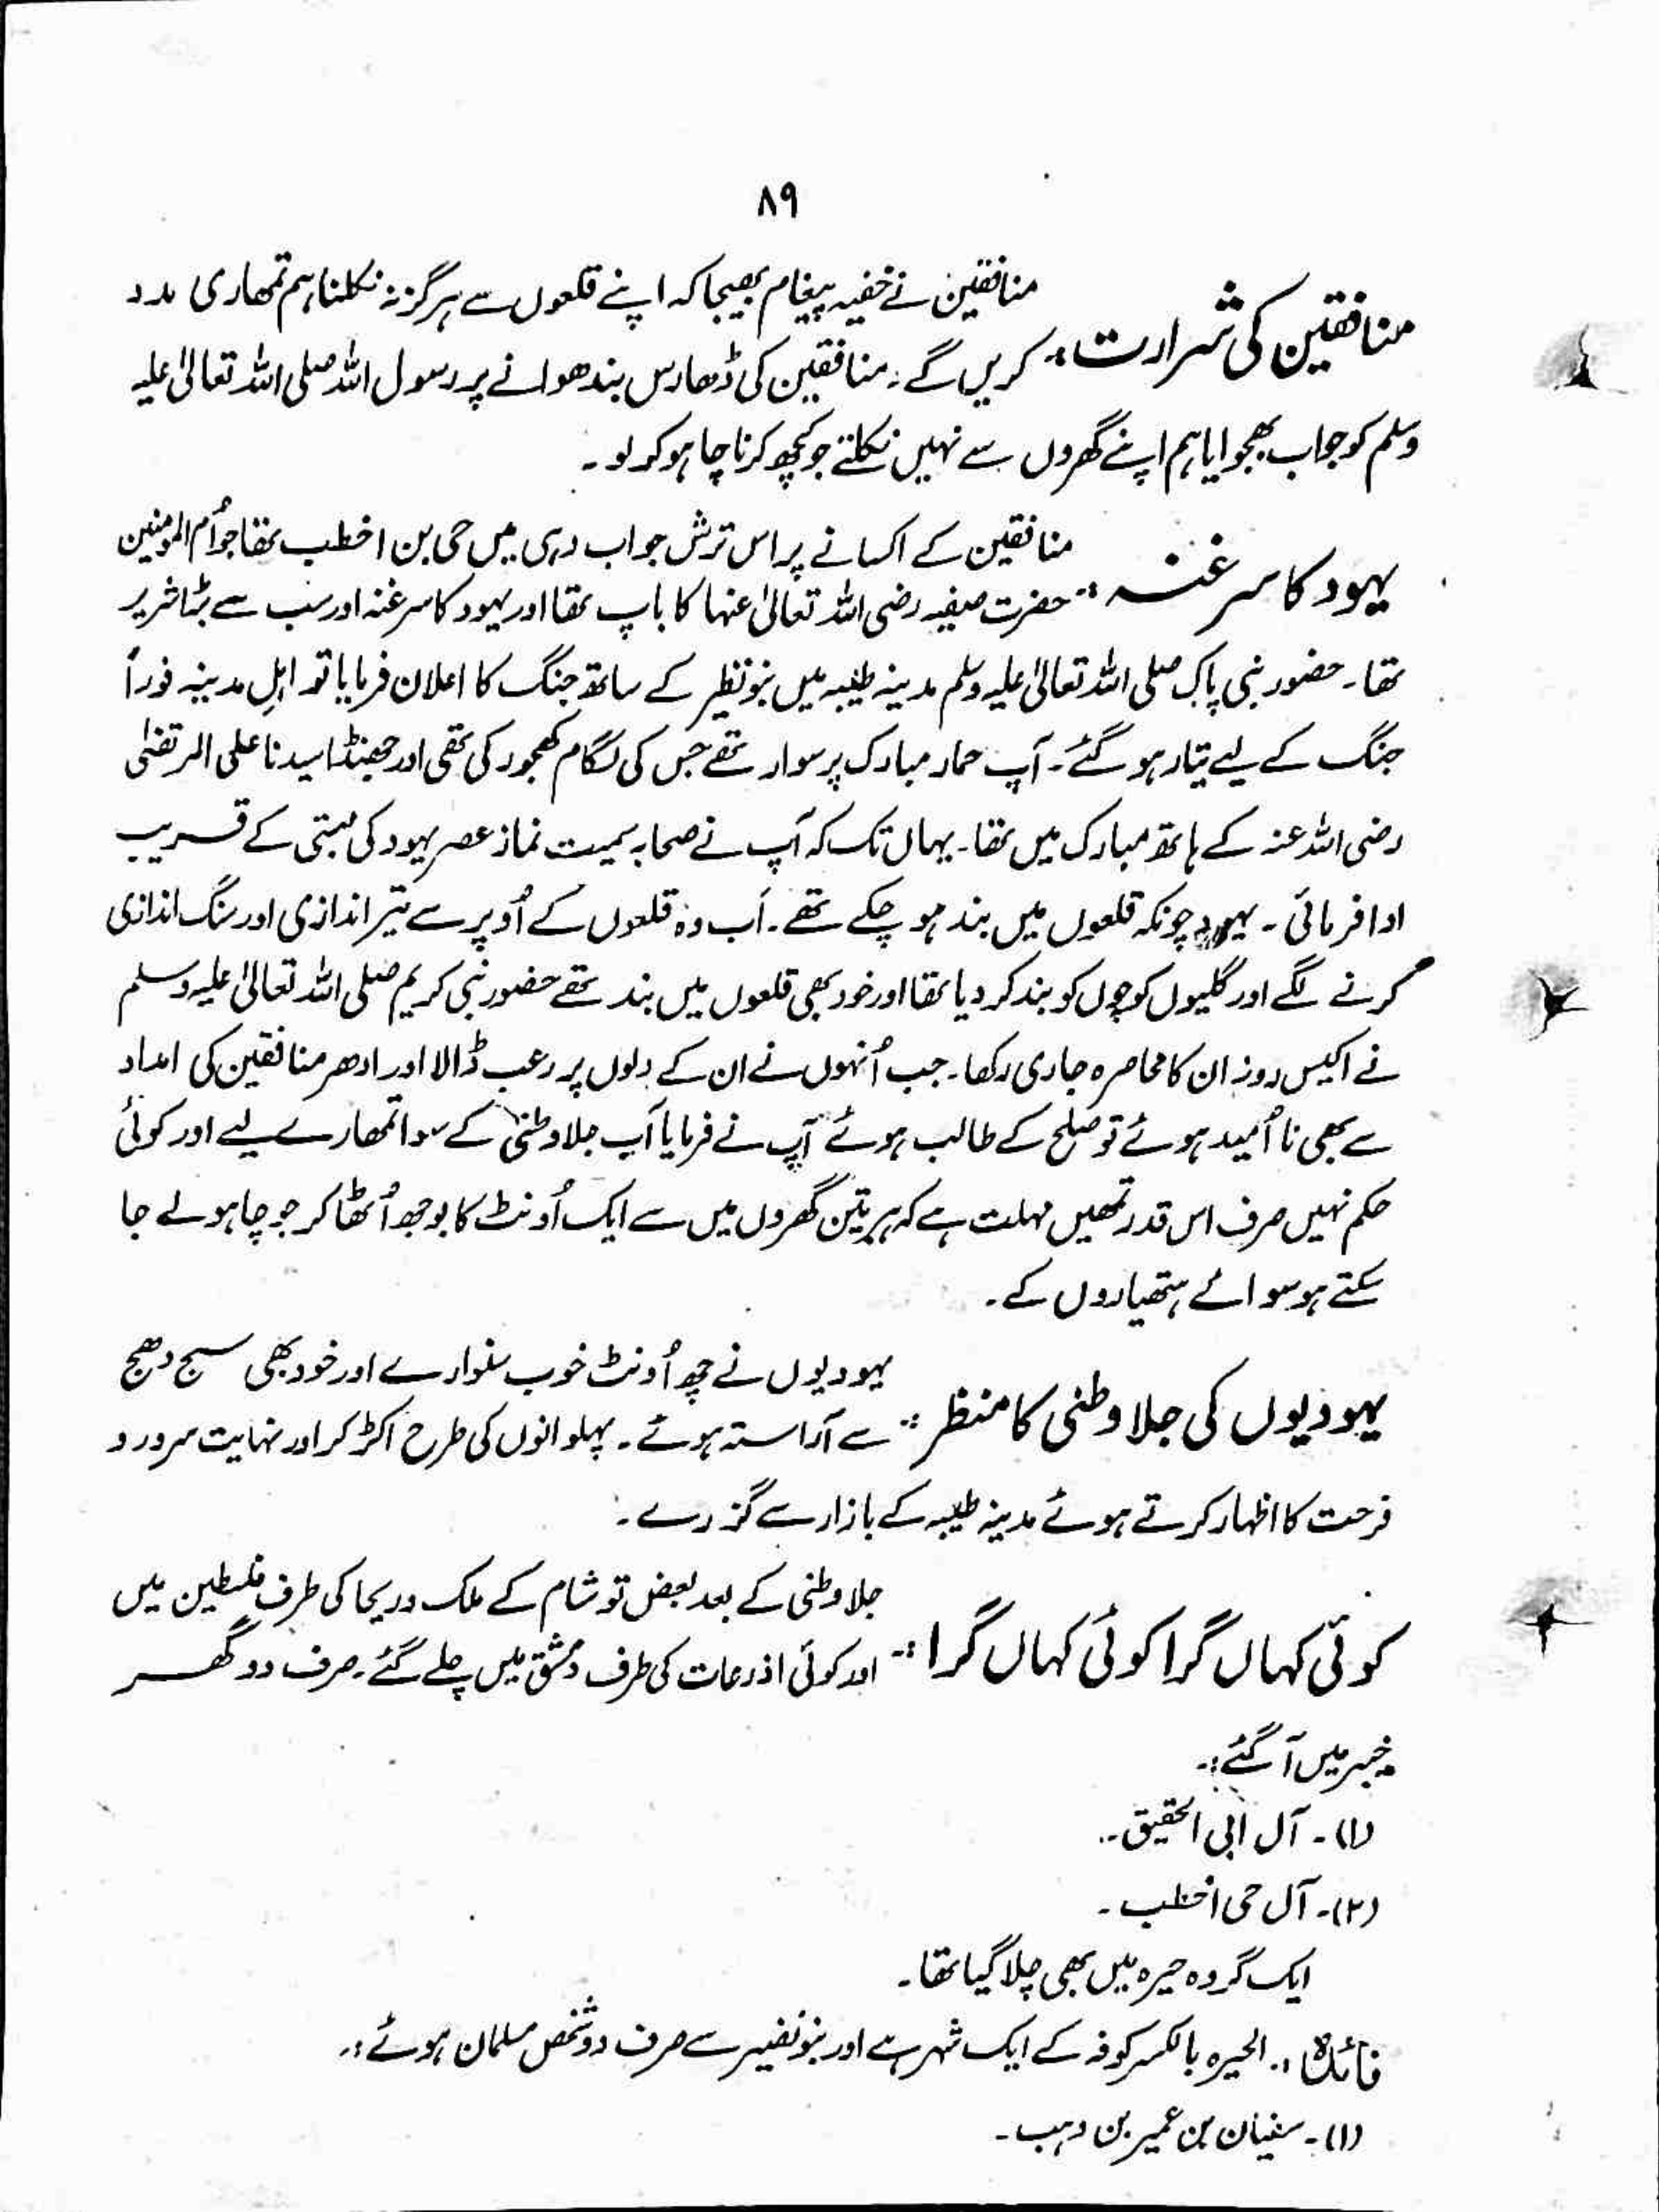 ۸۹
منافقین کی شرارت:۔ منافقین نے خفیہ پیغام بھیجا کہ اپنے قلعوں سے ہرگز نہ نکلنا ہم تمھاری مدد
کریں گے۔ منافقین کی ڈھارس بندھوانے پر رسول اللہ صلی اللہ تعالیٰ علیہ
وسلم کو جواب بھجوایا ہم اپنے گھروں سے نہیں نکلتے جو کچھ کرنا چاہو کر لو۔
یہود کا سرغنہ:۔ منافقین کے اکسانے پر اس ترش جواب دہی میں حی بن اخطب تھا جو اُم المومنین
حضرت صفیہ رضی اللہ تعالیٰ عنہا کا باپ تھا اور یہود کا سرغنہ اور سب سے بڑا شریر
تھا۔ حضور نبی پاک صلی اللہ تعالیٰ علیہ وسلم مدینہ طیبہ میں بنو نظیر کے ساتھ جنگ کا اعلان فرمایا تو اہلِ مدینہ فوراً
جنگ کے لیے تیار ہو گئے۔ آپ حمار مبارک پر سوار تھے جس کی لگام کھجور کی تھی اور جھنڈا سیدنا علی المرتضیٰ
رضی اللہ عنہ کے ہاتھ مبارک میں تھا۔ یہاں تک کہ آپ نے صحابہ سمیت نماز عصر یہود کی بستی کے قریب
ادا فرمائی۔ یہود چونکہ قلعوں میں بند ہو چکے تھے۔ اَب وہ قلعوں کے اُوپر سے تیر اندازی اور سنگ اندازی
کرنے لگے اور گلیوں کوچوں کو بند کر دیا تھا اور خود بھی قلعوں میں بند تھے حضور نبی کریم صلی اللہ تعالیٰ علیہ وسلم
نے اکیس روز ان کا محاصرہ جاری رکھا۔ جب اُنہوں نے ان کے دلوں پر رعب ڈالا اور ادھر منافقین کی امداد
سے بھی نا اُمید ہوئے تو صلح کے طالب ہوئے آپ نے فرمایا اَب جلاوطنی کے سوا تمھارے لیے اور کوئی
حکم نہیں صرف اس قدر تمھیں مہلت ہے کہ ہر تین گھروں میں سے ایک اُونٹ کا بوجھ اُٹھا کر جو چاہو لے جا
سکتے ہو سوائے ہتھیاروں کے۔
یہودیوں کی جلا وطنی کا منظر:۔ یہودیوں نے چھ اُونٹ خوب سنوارے اور خود بھی سج دھج
سے آراستہ ہوئے۔ پہلوانوں کی طرح اکڑ کر اور نہایت سرور و
فرحت کا اظہار کرتے ہوئے مدینہ طیبہ کے بازار سے گزرے۔
کوئی کہاں گرا کوئی کہاں گرا:۔ جلا وطنی کے بعد بعض تو شام کے ملک دریحا کی طرف فلسطین میں
اور کوئی اذرعات کی طرف دمشق میں چلے گئے۔ صرف دو گھر
خیبر میں آ گئے:۔
(۱)۔ آل ابی الحقیق۔
(۲)۔ آل حی اخطب۔
ایک گروہ حیرہ میں بھی چلا گیا تھا۔
فائدہ:۔ الحیرہ بالکسر کوفہ کے ایک شہر ہے اور بنو نضیر سے صرف دو شخص مسلمان ہوئے:۔
(۱)۔ سفیان بن عمیر بن وہب۔